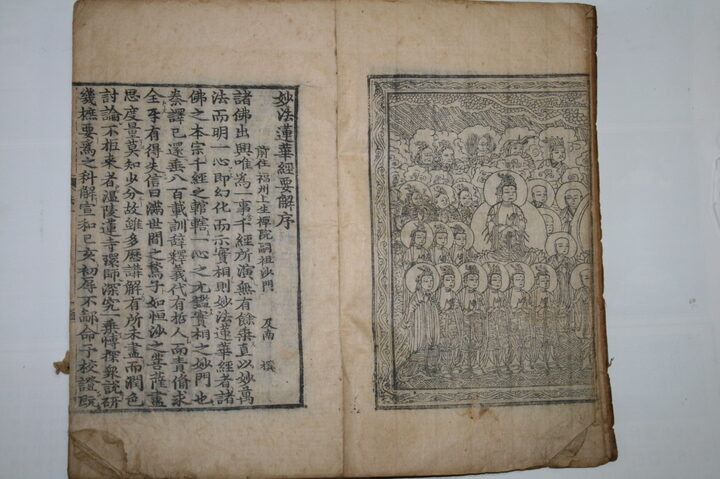 妙法蓮華經要解序
前住福州上生禪院嗣祖沙門 及南 撰
諸佛出興唯為一事千經所演無有餘乗直以妙萬
法而明一心即幻化而示實相則妙法蓮華經者諸
佛之本宗千經之輨轄一心之元鑑實相之妙門也
秦譯已還垂八百載訓辭釋義代有哲人而責脩求
全互有得失信日滿世間之鶖子如恒沙之菩薩盡
思度量莫知少分故雖多歷講解有所未盡而潤色
討論不拒來者溫陵蓮寺環師深究一乗愽探衆說研
幾摭要為之科解宣和己亥初辱不鄙命予校證既